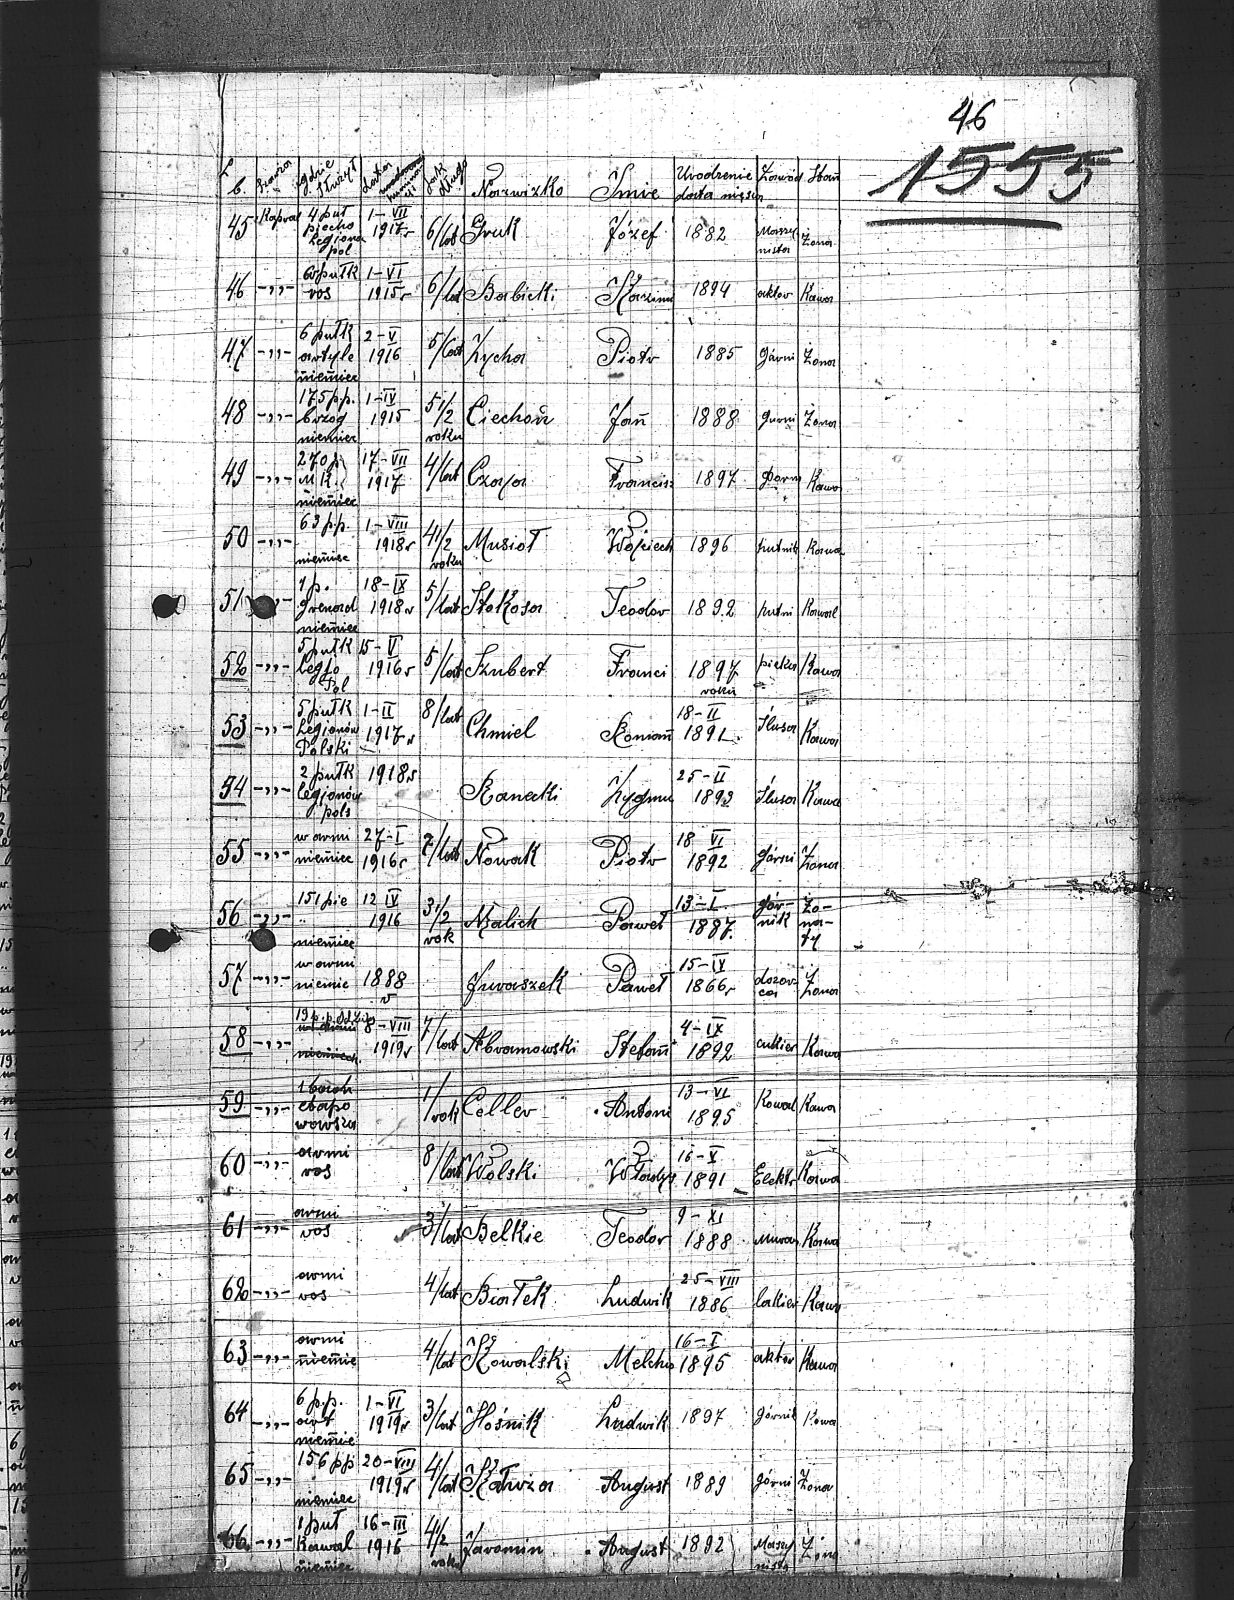 46
1555
L b. gdzie służył jak długo Nazwizko Imie Urodzenie data miesią Zawód Stan
45 Kapral 4 puł piecho Legiona pol 1-VII 1917r 6/lat Gruk Józef 1882 Maszy nista Żona
46 -,,- 60 pułk ros 1-VI 1915r 6/lat Babicki Kazimi 1894 aktor Kawa
47 -,,- 6 pułk artyle niemiec 2-V 1916 5/lat Zycha Piotr 1885 Górni Żona
48 -,,- 175 pp. niemiec 1-IV 1915 5 1/2 roku Ciechoń Jan 1888 Gurni Żona
49 -,,- 270 p M.K. niemiec 17-VII 1917 4/lat Czaja Francis 1897 Kawa
50 -,,- 63 p.p. niemiec 1-VIII 1918r 4 1/2 roku Musioł Wojciech 1896 hutnik Kawa
51 -,,- 1 p. Grenad niemiec 18-IX 1918r 5/lat Stokosa Teodor 1892 hutni Kawal
52 -,,- 5 pułk Legjo Pol 15-V 1916r 5/lat Szubert Franci 1897 roku pieka Kawa
53 -,,- 5 pułk Legionów Polski 1-II 1917r 8/lat Chmiel Roman 18-II 1891. Ślusa Kawa
54 -,,- 2 pułk legjonów pols 1918r Kanecki Zygmu 25-II 1893 Ślusa Kawa
55 -,,- w armi niemiec 27-I 1916r 2/lat Nowak Piotr 18 VI 1892 Górni Żona
56 -,,- 151 pie niemiec 12 IV 1916 3 1/2 rok Nalich Paweł 13-I 1887. gór- nik Żo- na- ty
57 -,,- w armi niemie 1888 r Juraszek Paweł 15-IV 1866r dozor ca Żona
58 -,,- 19 p.p. niemiech 8-VIII 1919r 7/lat Abramowski Stefan 4-IX 1892 cukier Kawa
59 -,,- 1 baoh etapo warsza 1/rok Celler Antoni 13-VI 1895 Kowal Kawa
60 -,,- armi ros 8/lat Wolski Włady 16-X 1891 Elektr Kawa
61 -,,- armi ros 3/lat Belkie Teodor 9-XI 1888 Murar Kawa
62 -,,- armi ros 4/lat Białek Ludwik 25-VIII 1886 lakier Kawa
63 -,,- armi niemie 4/lat Kowalski Melcho 16-I 1895 aktor Kawa
64 -,,- 6 p.p. art niemie 1-VI 1919r 3/lat Hośnik Ludwik 1897 Górnik Kawa
65 -,,- 156 pp niemiec 20-VIII 1919r 4/lat Kałuza August 1889 Górni Żona
66 -,,- 1 puł Kawal niemiec 16-III 1916 4 1/2 roku Jaromin August 1892 Maszy nista Żona